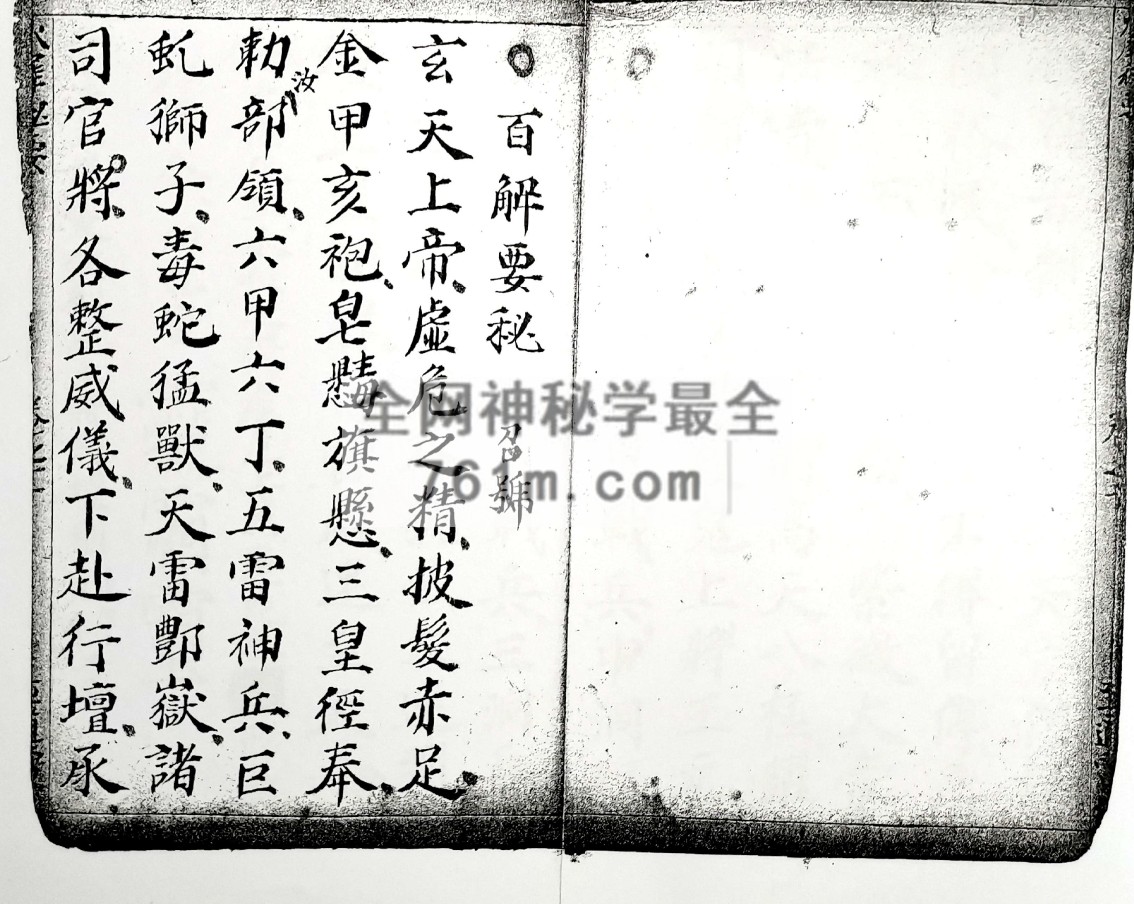 百解要秘 召號
玄天上帝虛危之精披髮赤足
金甲亥袍皂纛旗懸三皇徑奉
勅汝部領六甲六丁五雷神兵巨
虬獅子毒蛇猛獸天雷酆嶽諸
司官將各整威儀下赴行壇承
全网神秘学最全
761m.com